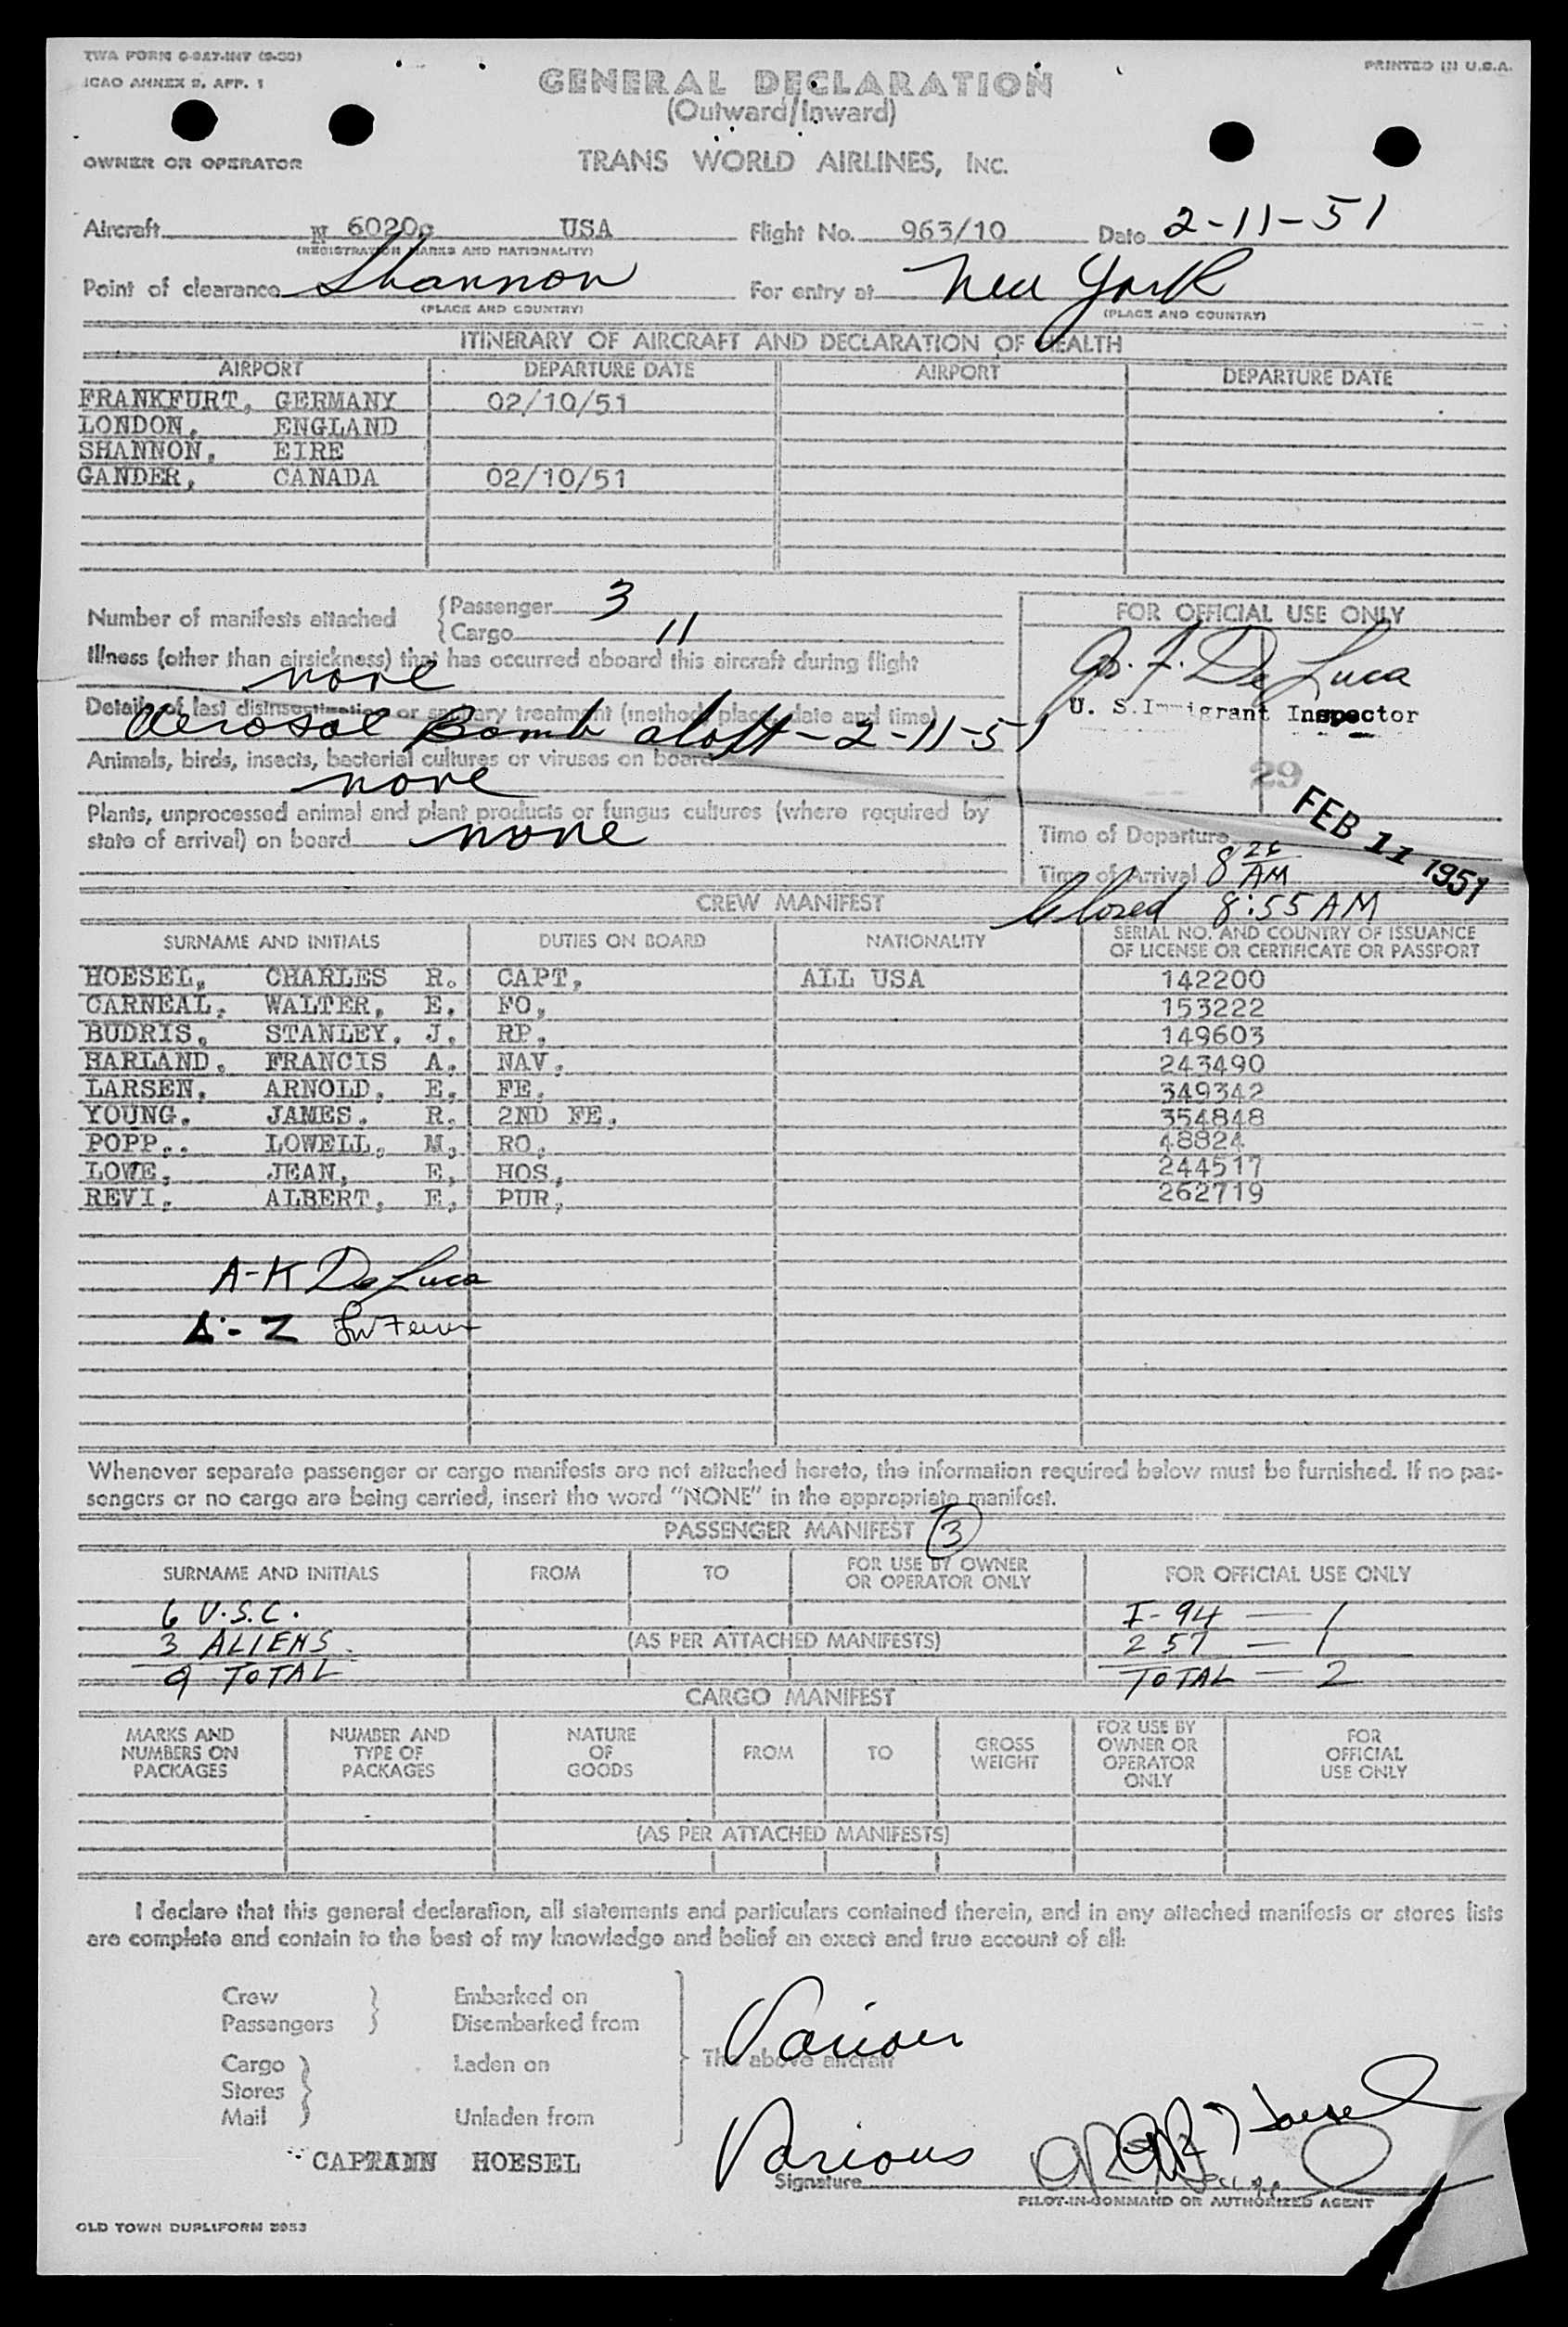 TWA FORM O-927-INT (9-50)
PRINTED IN U.S.A.
ICAO ANNEX 9, APP. 1
GENERAL DECLARATION
(Outward/Inward)
OWNER OR OPERATOR TRANS WORLD AIRLINES, INC.
Aircraft N 6020c USA Flight No. 963/10 Date 2-11-51
(REGISTRATION MARKS AND NATIONALITY)
Point of clearance Shannon For entry at New York
(PLACE AND COUNTRY) (PLACE AND COUNTRY)
ITINERARY OF AIRCRAFT AND DECLARATION OF HEALTH
AIRPORT DEPARTURE DATE AIRPORT DEPARTURE DATE
FRANKFURT, GERMANY 02/10/51
LONDON, ENGLAND
SHANNON, EIRE
GANDER, CANADA 02/10/51
Number of manifests attached { Passenger 3
{ Cargo 11
Illness (other than airsickness) that has occurred aboard this aircraft during flight
none
Details of last disinsectization or sanitary treatment (method, place, date and time)
Aerosol Bomb aloft - 2-11-51
Animals, birds, insects, bacterial cultures or viruses on board
none
Plants, unprocessed animal and plant products or fungus cultures (where required by
state of arrival) on board none
FOR OFFICIAL USE ONLY
De Luca
U. S. Immigrant Inspector
29
FEB 11 1951
Time of Departure
Time of Arrival 8 26 AM
Closed 8:55 AM
CREW MANIFEST
SURNAME AND INITIALS DUTIES ON BOARD NATIONALITY SERIAL NO. AND COUNTRY OF ISSUANCE
OF LICENSE OR CERTIFICATE OR PASSPORT
HOESEL, CHARLES R. CAPT, ALL USA 142200
CARNEAL, WALTER, E. FO, 153222
BUDRIS, STANLEY, J. RP, 149603
HARLAND, FRANCIS A. NAV, 243490
LARSEN, ARNOLD, E, FE, 349342
YOUNG, JAMES. R. 2ND FE, 354848
POPP,. LOWELL, M, RO, 48824
LOWE, JEAN, E, HOS, 244517
REVI, ALBERT, E, PUR, 262719
A-K De Luca
Z
Whenever separate passenger or cargo manifests are not attached hereto, the information required below must be furnished. If no pas-
sengers or no cargo are being carried, insert the word "NONE" in the appropriate manifest.
PASSENGER MANIFEST 3
SURNAME AND INITIALS FROM TO FOR USE BY OWNER
OR OPERATOR ONLY FOR OFFICIAL USE ONLY
6 U.S.C. I-94 — 1
3 ALIENS (AS PER ATTACHED MANIFESTS) 257 — 1
9 TOTAL TOTAL — 2
CARGO MANIFEST
MARKS AND
NUMBERS ON
PACKAGES
NUMBER AND
TYPE OF
PACKAGES
NATURE
OF
GOODS
FROM
TO
GROSS
WEIGHT
FOR USE BY
OWNER OR
OPERATOR
ONLY
FOR
OFFICIAL
USE ONLY
(AS PER ATTACHED MANIFESTS)
I declare that this general declaration, all statements and particulars contained therein, and in any attached manifests or stores lists
are complete and contain to the best of my knowledge and belief an exact and true account of all:
Crew Embarked on
Passengers Disembarked from
Various
Cargo Laden on The above aircraft
Stores
Mail Unladen from
CAPTAIN HOESEL
Various
Hoesel
Signature
PILOT-IN-COMMAND OR AUTHORIZED AGENT
OLD TOWN DUPLIFORM 2953